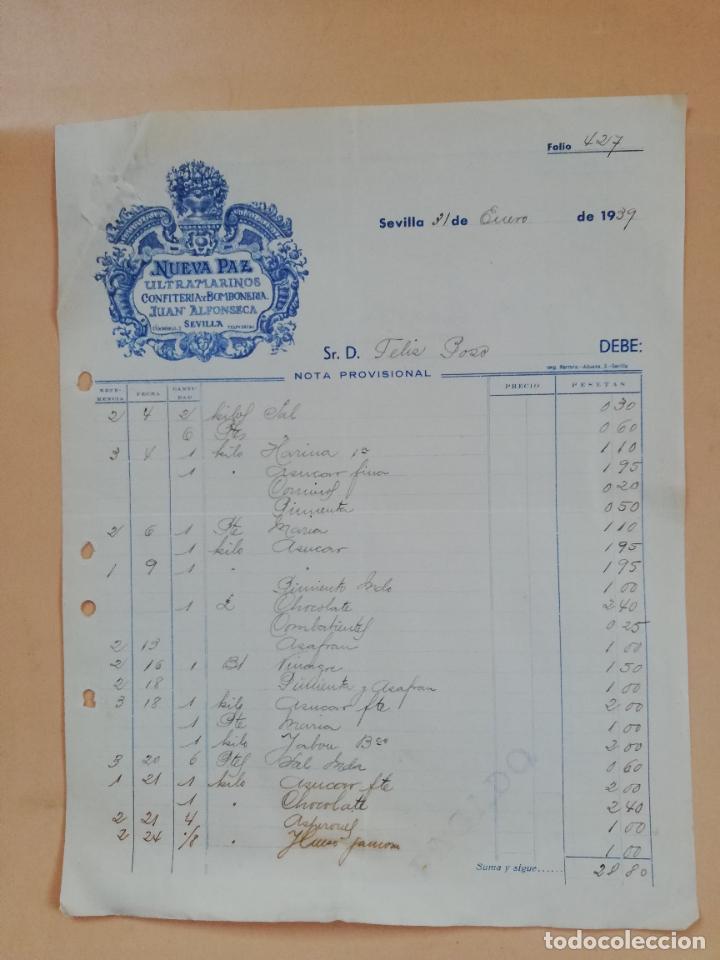 Folio 427
Sevilla 31 de Enero de 1939
NUEVA PAZ
ULTRAMARINOS
CONFITERIA Y BOMBONERIA
JUAN ALFONSECA
SEVILLA
Sr. D. Felis Poso DEBE:
NOTA PROVISIONAL
REFERENCIA FECHA CANTIDAD PRECIO PESETAS
2 4 2 kilos Sal 0 30
6 Pts 0 60
3 4 1 kilo Harina 1ª 1 10
1 " Asucar fina 1 95
Cominos 0 20
Pimienta 0 50
2 6 1 Pte Maria 1 10
1 kilo Asucar 1 95
1 9 1 " " 1 95
Pimiento Mdo 1 00
1 £ Chocolate 2 40
Combatientes 0 25
2 13 Asafran 1 00
2 16 1 Bt Vinagre 1 50
2 18 Pimienta y Asafran 1 00
3 18 1 kilo Asucar fte 2 00
1 Pte Maria 1 00
1 kilo Jabon Bco 2 00
3 20 6 Ptes Sal Mda 0 60
1 21 1 kilo Asucar fte 2 00
1 " Chocolate 2 40
2 21 4 Asperones 1 00
2 24 1/8 " Hueso jamon 1 00
Suma y sigue 28 80
todocoleccion
todocoleccion.net